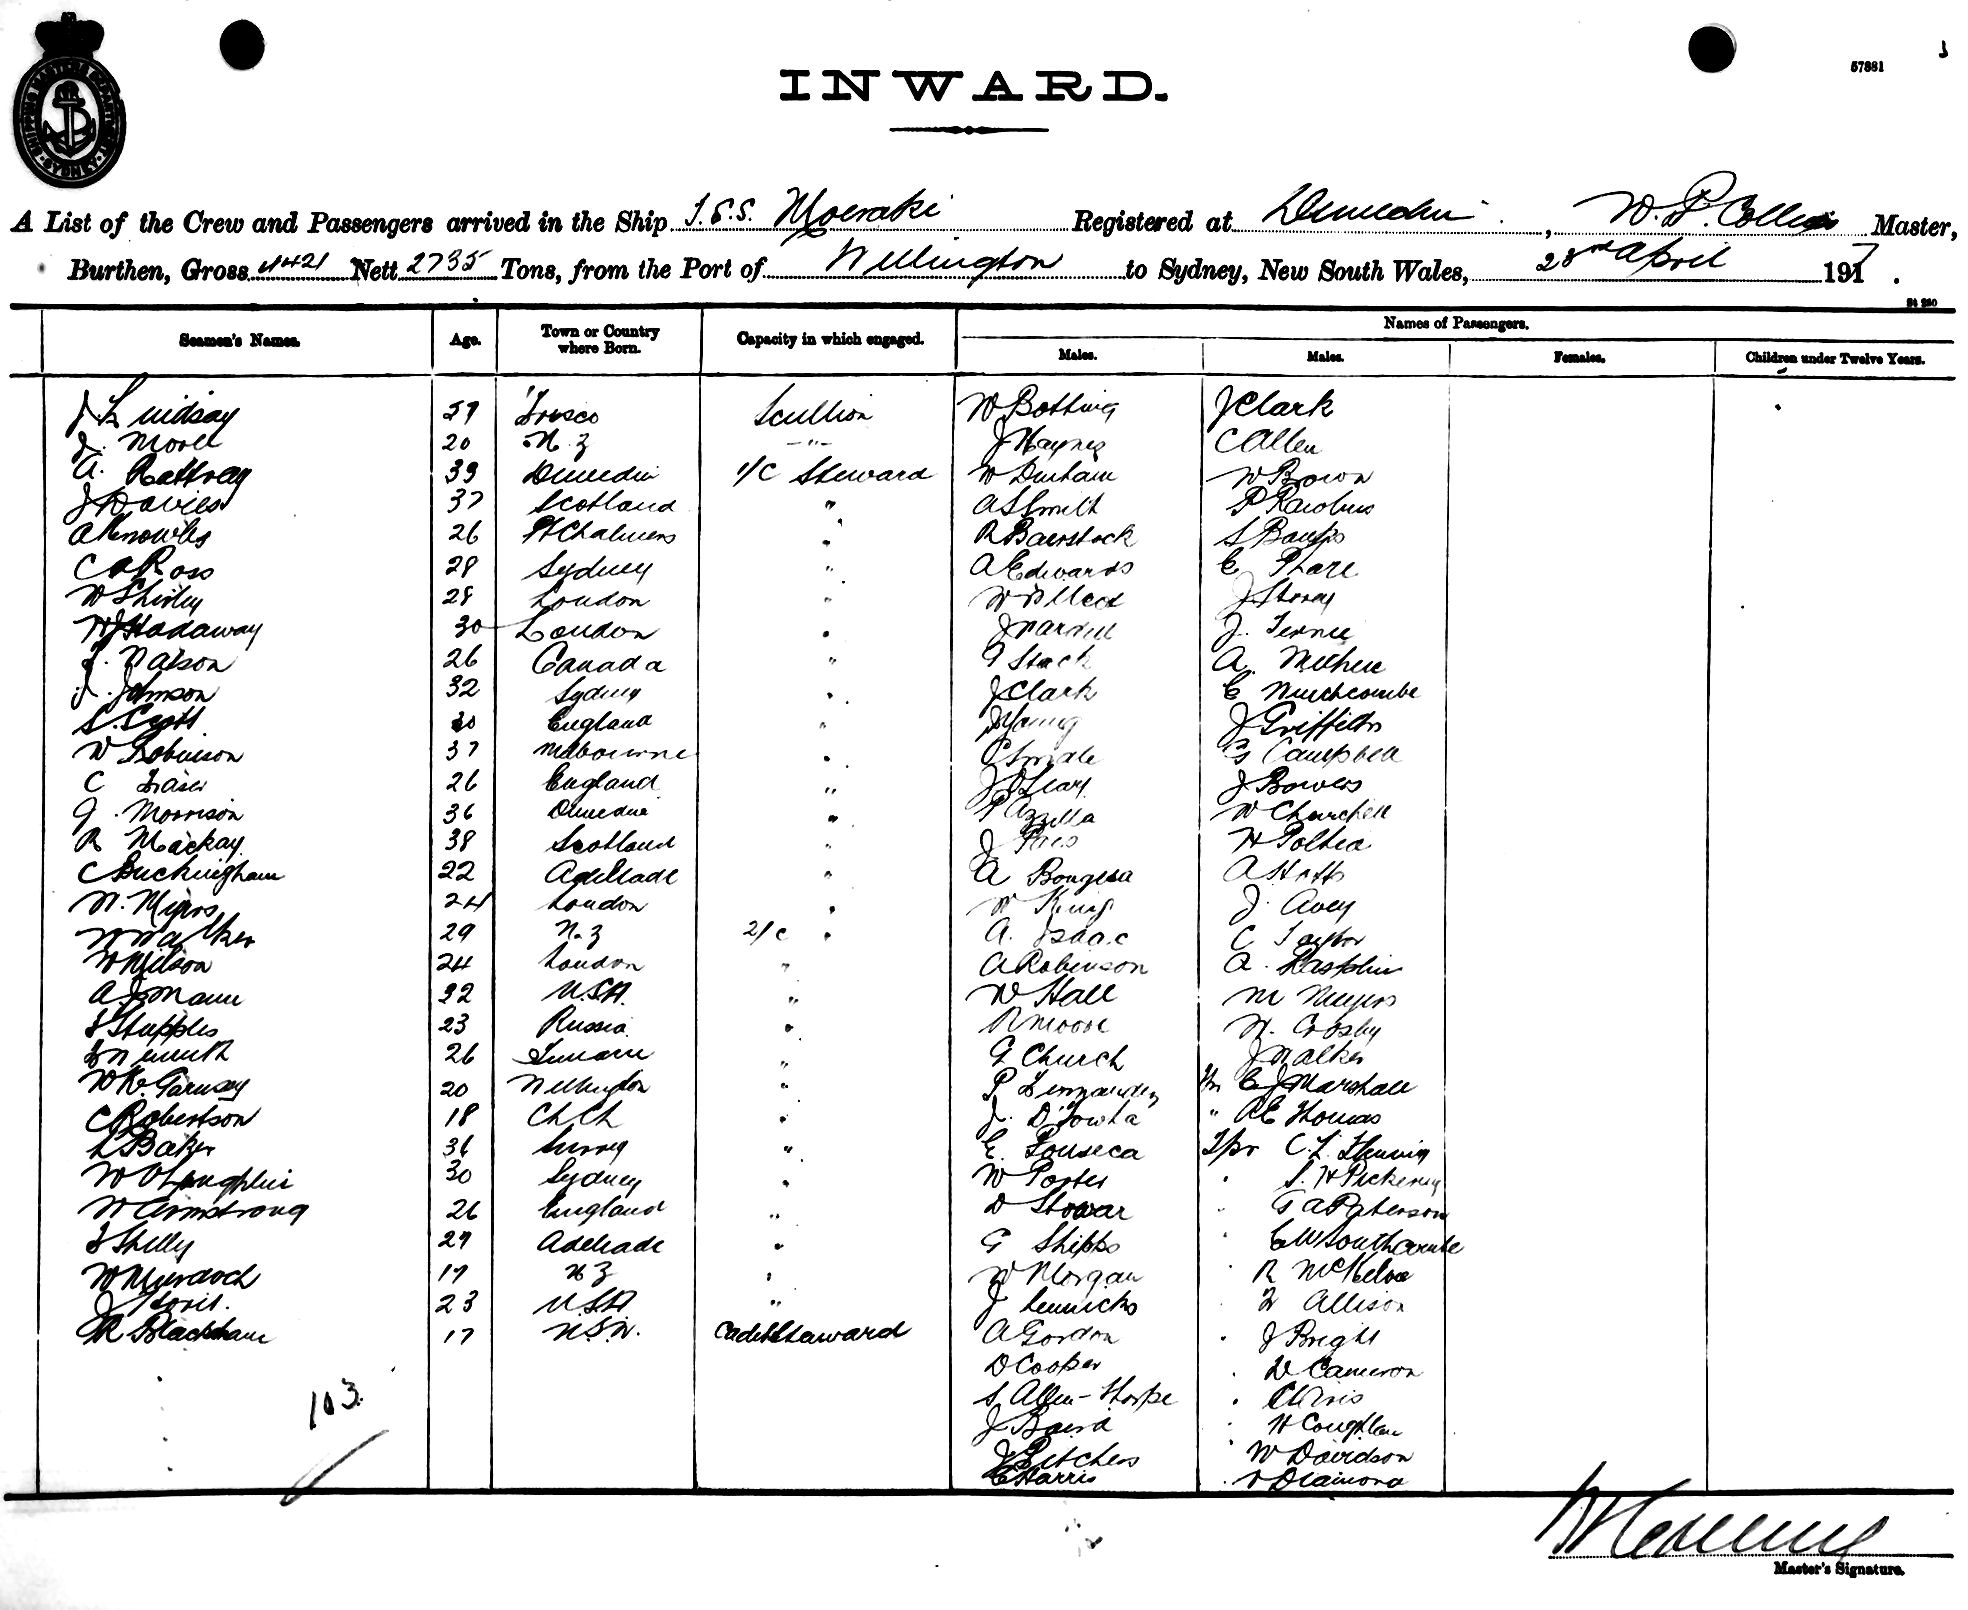 57881
INWARD.
SHIPPING MASTERS DEPARTMENT SYDNEY
A List of the Crew and Passengers arrived in the Ship T.S.S. Moeraki Registered at Dunedin, W. P. Collins Master,
Burthen, Gross 4421 Nett 2735 Tons, from the Port of Wellington to Sydney, New South Wales, 23rd April 1917.
Seamen's Names. Age. Town or Country where Born. Capacity in which engaged. Names of Passengers.
Males. Males. Females. Children under Twelve Years.
J Lindsay Frisco Scullion W Botting J Clark
J. Moore 20 N.Z -"- J Haynes C Allen
A. Rattray 39 Dunedin 1/C Steward W Durham W Brown
J Davies 37 Scotland " A Smith
A Knowles 26 Pt Chalmers " R Baerstock S Banks
C A Ross 28 Sydney " A Edwards E Phare
W Shirley 28 London " J Storey
W J Hadaway 30 London "
J. Watson 26 Canada " G Stack A.
J. Johnson 32 Sydney " J Clark E
S. Scott 30 England " J Young J Griffiths
W Robinson 37 Melbourne " C Smale G Campbell
C Fraser 26 England " J O'Leary J Bowers
G. Morrison 36 Dunedin " P Azzilla W Churchill
R Mackay 38 Scotland " J
C Buckingham 22 Adelaide " A
W. Myers 24 London " W King J. Avey
W Walker 29 N.Z 2/C " A. Isaac C Taylor
W Wilson 24 London " A Robinson A.
A J Mann 32 U.S.A. " W Hall M Meyers
S Stupples 23 Russia " R Moore W. Crosby
26 " G Church J Walker
W H Garnsey 20 Wellington " P C J Marshall
C Robertson 18 Ch Ch " J. " A E Thomas
L Baker 36 Surrey " E. Fonseca Tpr C. L. Fleming
W O'Loughlin 30 Sydney " W Porter " S. H Pickering
W Armstrong 26 England " D Stowar " G A Paterson
S Shelly 27 Adelaide " G Shipps " C W Southcombe
W Murdoch 19 N Z " W Morgan " R McKelvie
J 23 U.S.A " J " F Allison
R Blackham 17 N.S.W. Cadet Steward A Gordon " J Bright
D Cooper " D Cameron
S Allen-Thorpe "
J Baird " H Coughlan
J Pitchers " W Davidson
C Harris " V Diamond
103.
Master's Signature.